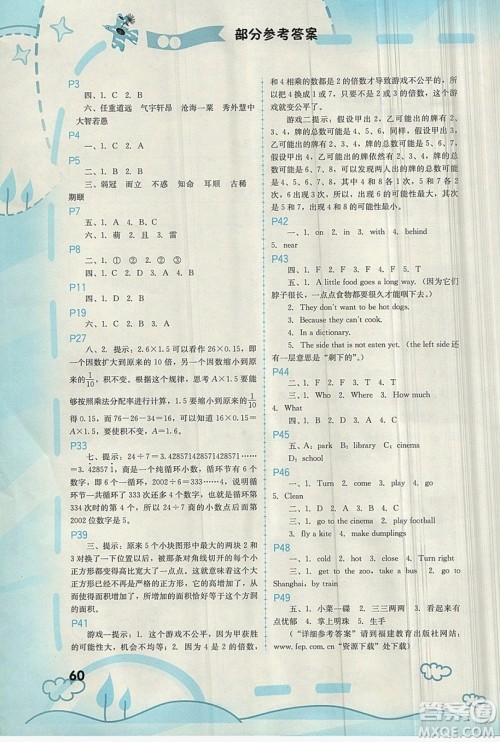 部分参考答案
P3
四、1. C 2. B
六、任重道远 气宇轩昂 沧海一粟 秀外慧中
大智若愚
P4
一、1. C 2. B
P5
三、弱冠 而立 不惑 知命 耳顺 古稀
期颐
P7
五、1. A 2. C
六、1. 萌 2. 雷
P8
一、1. ② 2. ① ② ③
P11
四、1. C 2. D
P19
一、1. B 2. A
P27
八、2. 提示：2.6×1.5 可以看作 26×0.15，即
一个因数扩大到原来的 10 倍，另一个因数缩小到原
来的1/10，积不变。根据这个规律，思考 A×1.5 能
够按照乘法分配率进行计算，1.5 可以缩小到原来的1/10
得 0.15，而 76－26－34＝16，因此 16×0.15＝
A×1.5，A＝1.6。
P33
七、提示：24÷7＝3.428571428571428571…＝
3.428571，商是一个纯循环小数，循环节为
428571，6 个数字一循环，2002÷6＝333……4，循
环节循环 333 次还余下 4 个数字，即循环节循环第
334 次时的第 4 个数字，因此 24÷7 的商的小数点后
2002 位数字是 5。
P39
三、提示：原来 5 个小块图形中最大的两块 2 和
3 对换了一下位置后，被那条对角线切开的每个小
正方形都变得高比宽大了一点点，这意味着这个大
正方形不再是严格的正方形。它的高增加了，从而
使得面积增加，所增加的面积恰好等于那个方洞
的面积。
P41
游戏一提示：1. 这个游戏不公平，因为甲获胜
的可能性大，乙的可能性小。 2. 因为 4 是 2 的倍数，
和 4 相乘的数都是 2 的倍数才导致游戏不公平，所以
只要把 4 改为 1 或 3 或 5 等不是 2 的倍数，这个游
戏就变公平了。
游戏二提示，假设甲出 2，乙可能出的牌有 2、
3、4，牌的总数可能是 4、5、6，同样，假设甲出
3，乙可能出的牌有 2、3、4，牌的总数可能是 5、
6、7；假设甲出 4，乙可能出的牌有 2、3、4，牌的
总数可能是 6、7、8。因此总数可能出现的情况是 1
次 4，2 次 5，3 次 6，2 次 7，1 次 8。出现 6 的可能
性最大，出现 4 和 8 的可能性最小。
P42
一、1. on 2. and 3. with 4. behind
5. near
P43
四、1. F 2. F 3. T 4. T
五、1. A little food goes a long way.（因为它们
脖子很长，一点点食物都要很久才能咽下去。）
2. They don't want to be hot dogs.
3. Because they can't cook.
4. In a dictionary.
5. The side that is not eaten yet. (the left side 还
有一层意思是“剩下的”。)
P44
二、1. F 2. F 3. T 4. T
三、1. Who 2. Where 3. How much
4. What
P45
五、A: park b: library c: cinema
D: school
P46
一、1. Turn 2. go 3. going 4. going
5. Clean
P47
二、1. down 2. going 3. by 4. Turn right
三、1. go to the cinema 2. play football
3. fly a kite 4. make dumplings
P48
一、1. get to the zoo, take a bus 2. go to
Shanghai, by train
P49
五、1. 小菜一碟 2. 三三两两 3. 看起来有点
忧郁 4. 掌上明珠 5. 生手
（“详细参考答案”请到福建教育出版社网站
www.fep.com.cn“资源下载”处下载）
60
答案圈
MXQE.COM